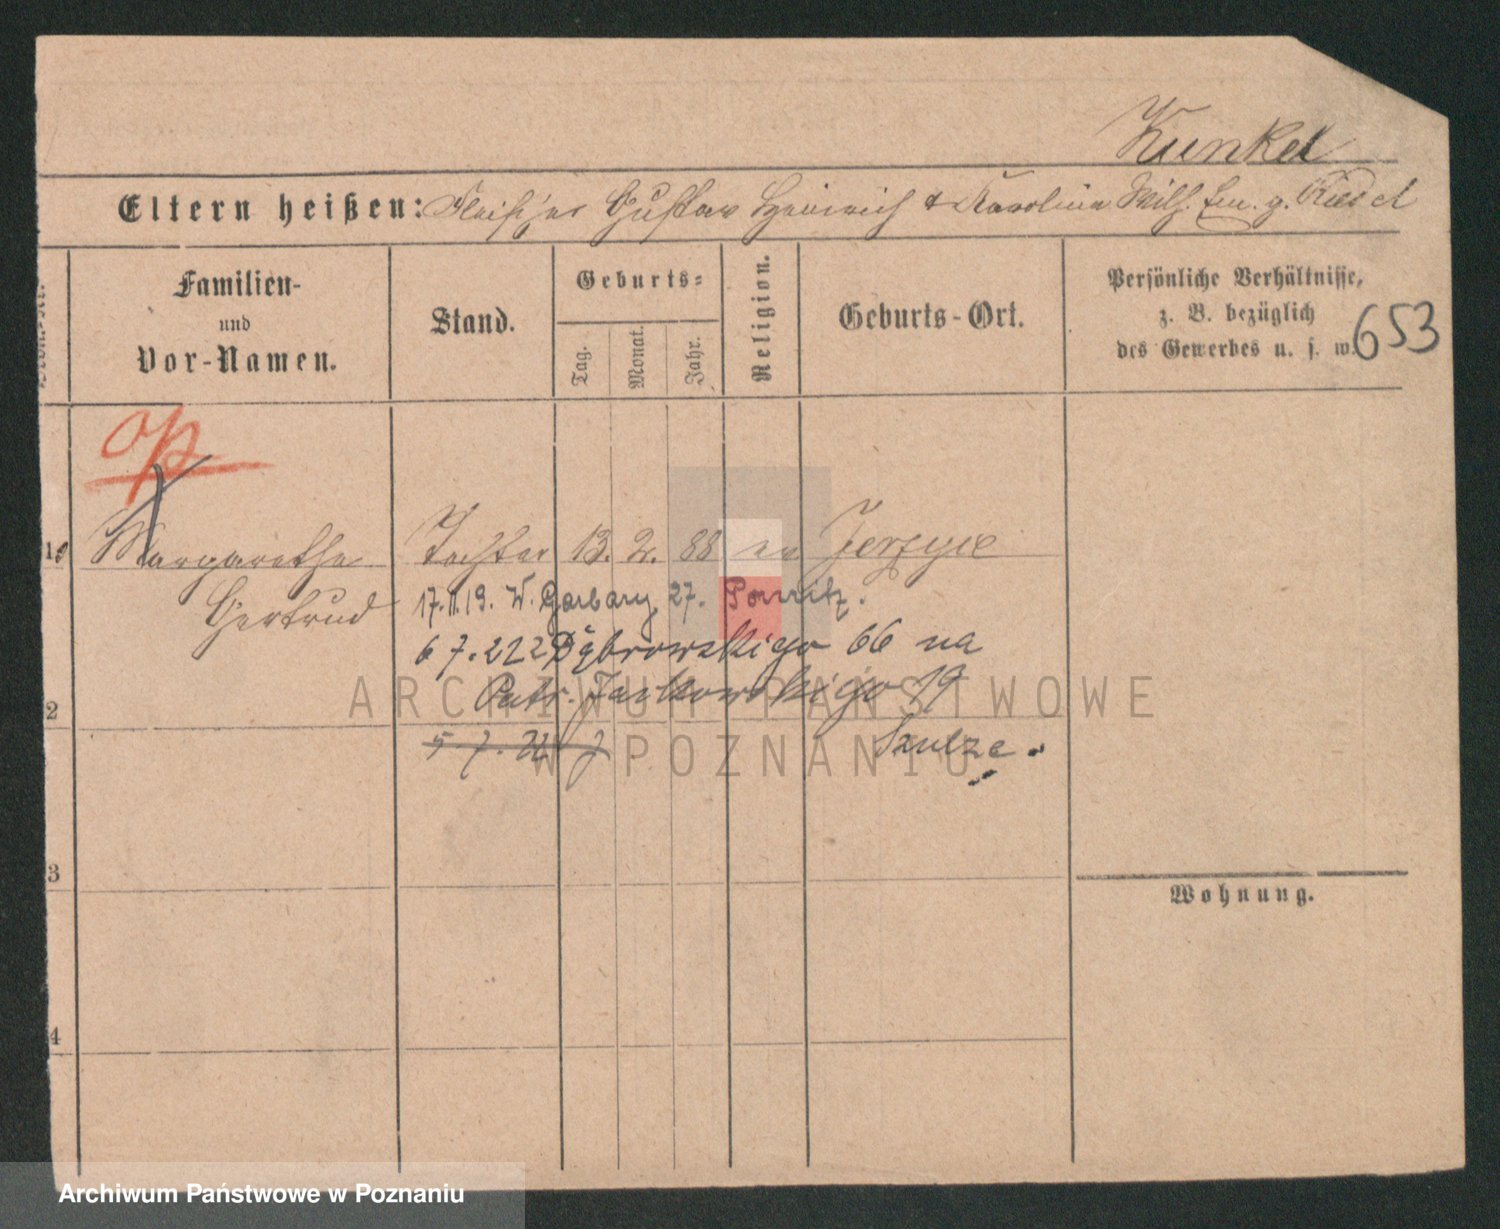 Kunkel
Eltern heißen: Fleischer Gustav Heinrich & Karolina Wilh. Em. g. Riedel
Familien-
und
Vor-Namen.
Stand.
Geburts-
Tag.
Monat.
Jahr.
Religion.
Geburts-Ort.
Persönliche Verhältnisse,
z. B. bezüglich
des Gewerbes u. s. w.
653
1 Margarethe Tochter 13. 2. 88 ev Jerzyce
Gertrud
17.II.19. W. Garbary 27.
6 7.22 Dąbrowskigo 66 na
Patr. Jackowskigo 19
2
5 7. 22 Szulze.
3
Wohnung.
4
ARCHIWUM PAŃSTWOWE
W POZNANIU
Archiwum Państwowe w Poznaniu